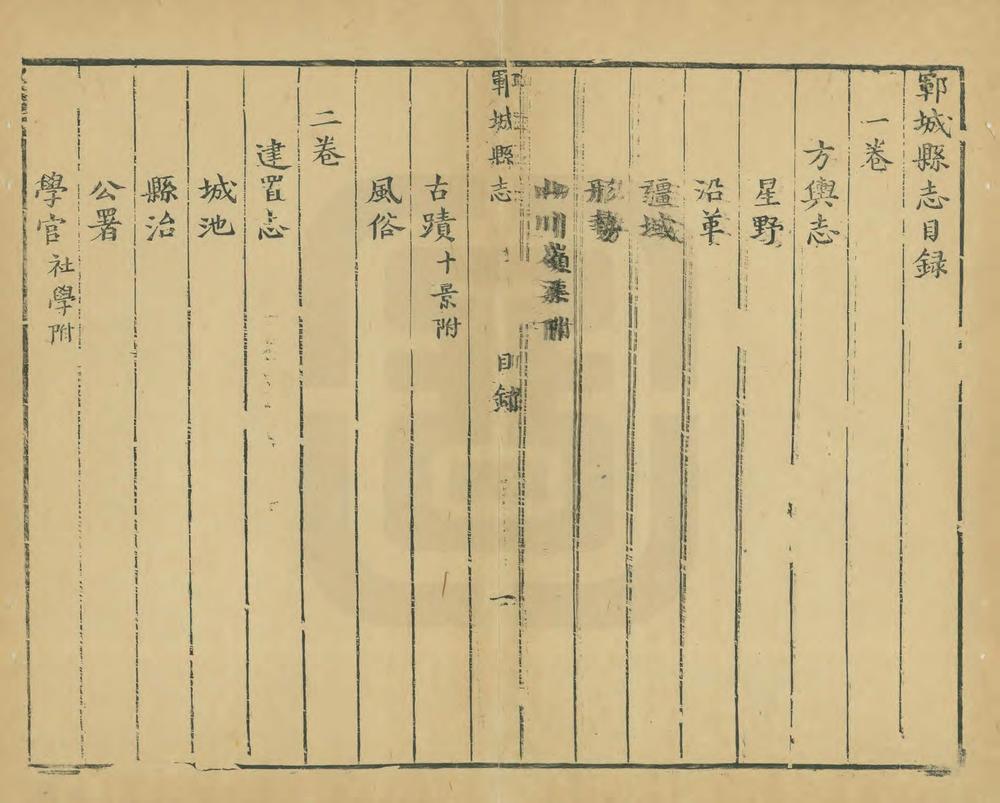 鄆城縣志目録
一巻
方輿志
星野
沿革
疆域
形勢
山川嶺集附
古蹟十景附
風俗
鄆城縣志 目録 一
二巻
建置志
城池
縣治
公署
學官社學附